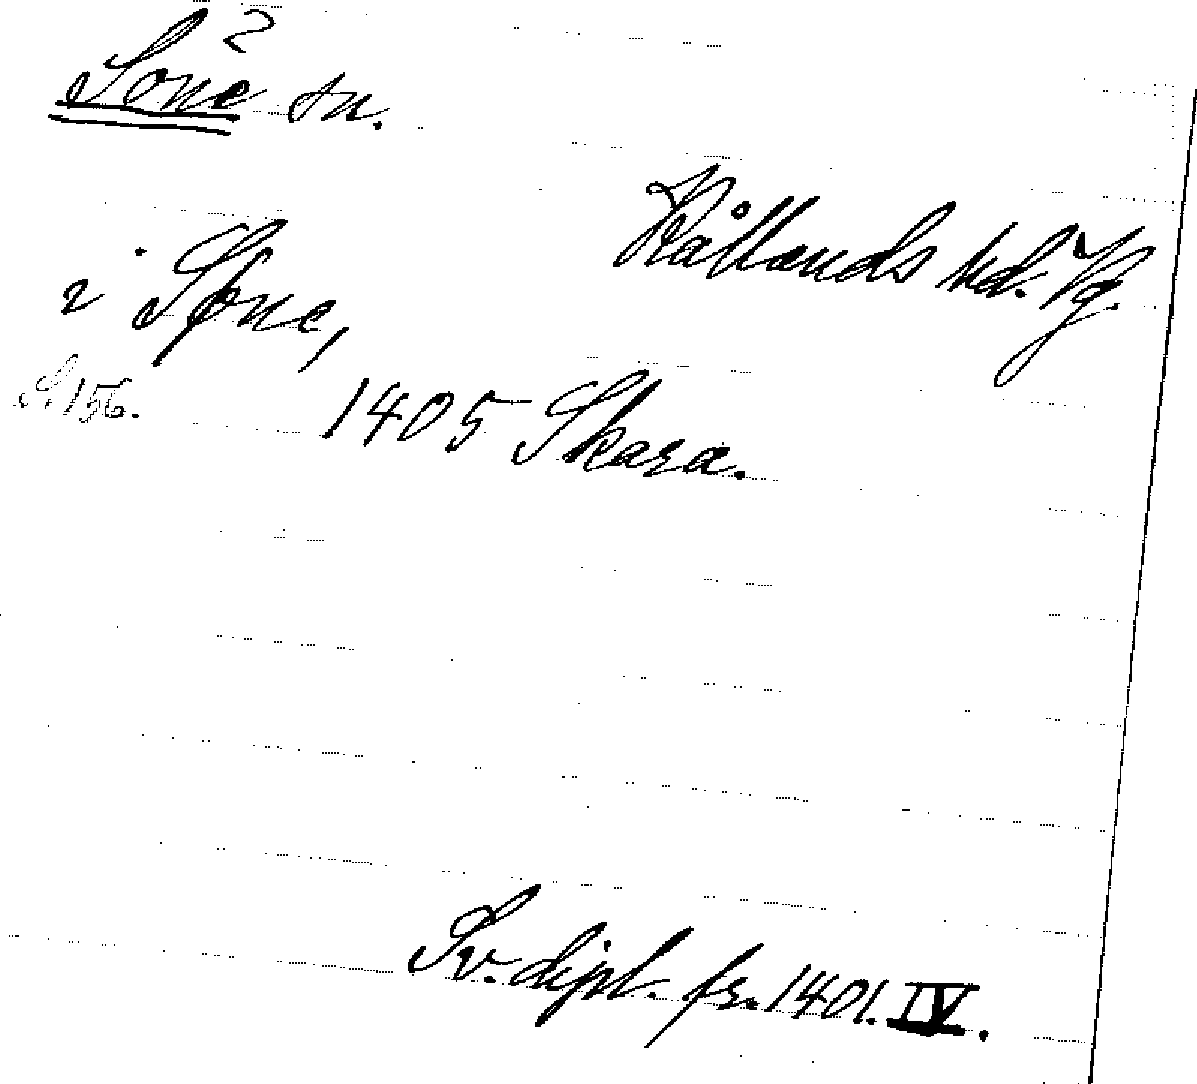 2
Sone sn.
Kållands hd. Vg.
i Søne,
S. 156.
1405 Skara.
Sv. dipl. fr. 1401. IV.